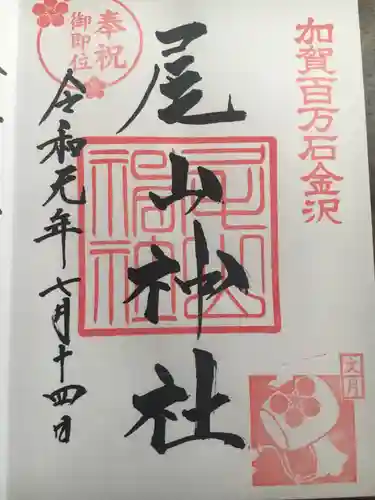 加賀百万石金沢
奉祝
御即位
尾山神社
令和元年七月十四日
文月